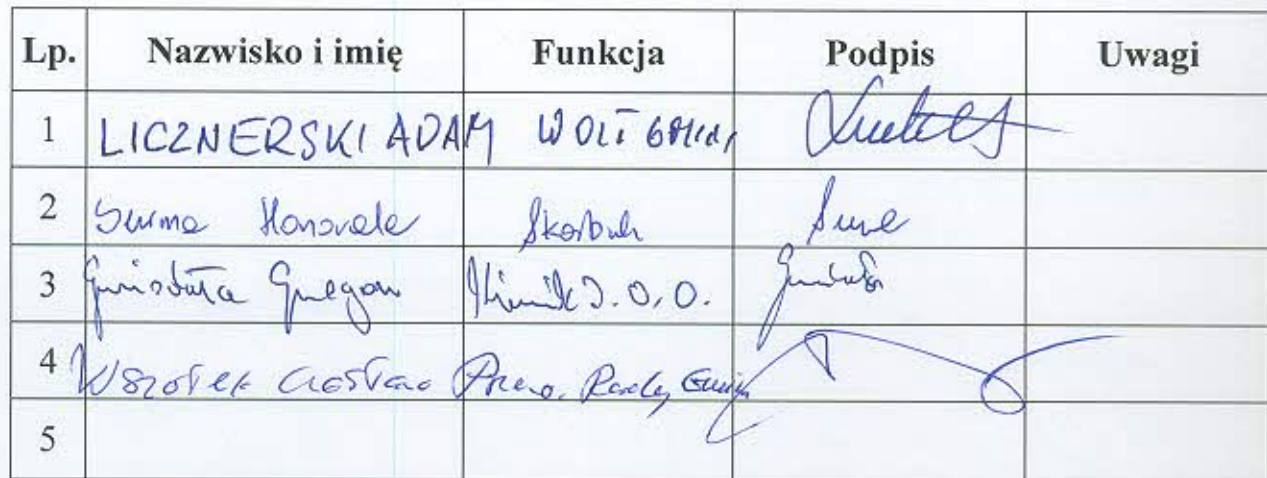 Lp. Nazwisko i imię Funkcja Podpis Uwagi
1 LICZNERSKI ADAM WÓJT GMINY
2 Surma Honorata Skarbnik
3 Gwiazdała Grzegorz Kierownik J.O.O.
4 Wszołek Czesław Przew. Rady Gminy
5